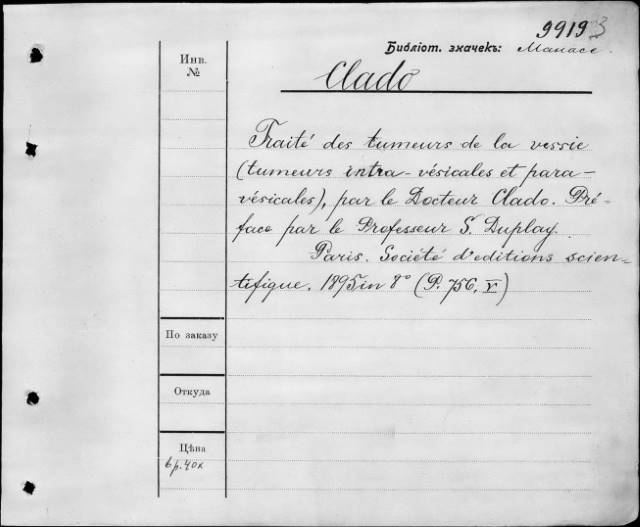 99193
Библіот. значекъ: Манасс.
Инв.
№
Clado
Traité des tumeurs de la vessie
(tumeurs intra-vésicales et para-
vésicales), par le Docteur Clado. Pré-
face par le Professeur S. Duplay.
Paris. Société d'editions scien-
tifique. 1895 in 8° (P. 756. V)
По заказу
Откуда
Цѣна
6 р. 40 к